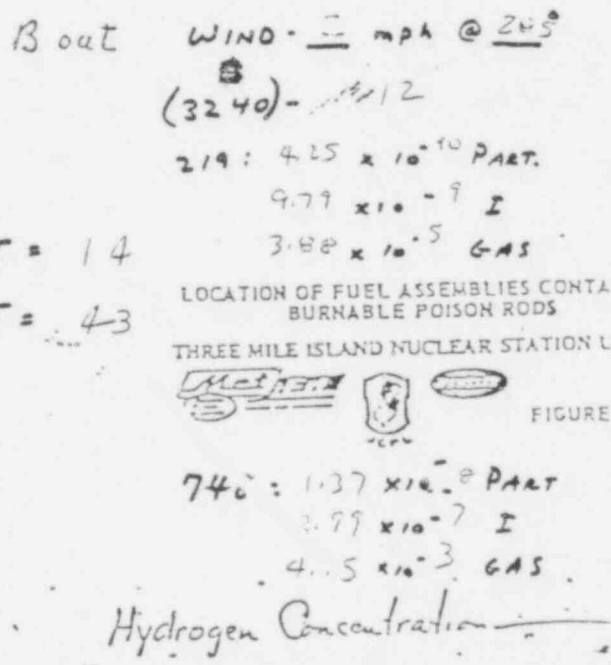 B out WIND - mph @
(3240) - 12
219 : 4.25 x 10⁻¹⁰ PART.
9.79 x 10⁻⁹ I
= 14 3.88 x 10⁻⁵ GAS
LOCATION OF FUEL ASSEMBLIES CONTA
= 43 BURNABLE POISON RODS
THREE MILE ISLAND NUCLEAR STATION U
Met
FIGURE
: 1.37 x 10⁻⁸ PART
x 10⁻⁷ I
x 10⁻³ GAS
Hydrogen Concentration